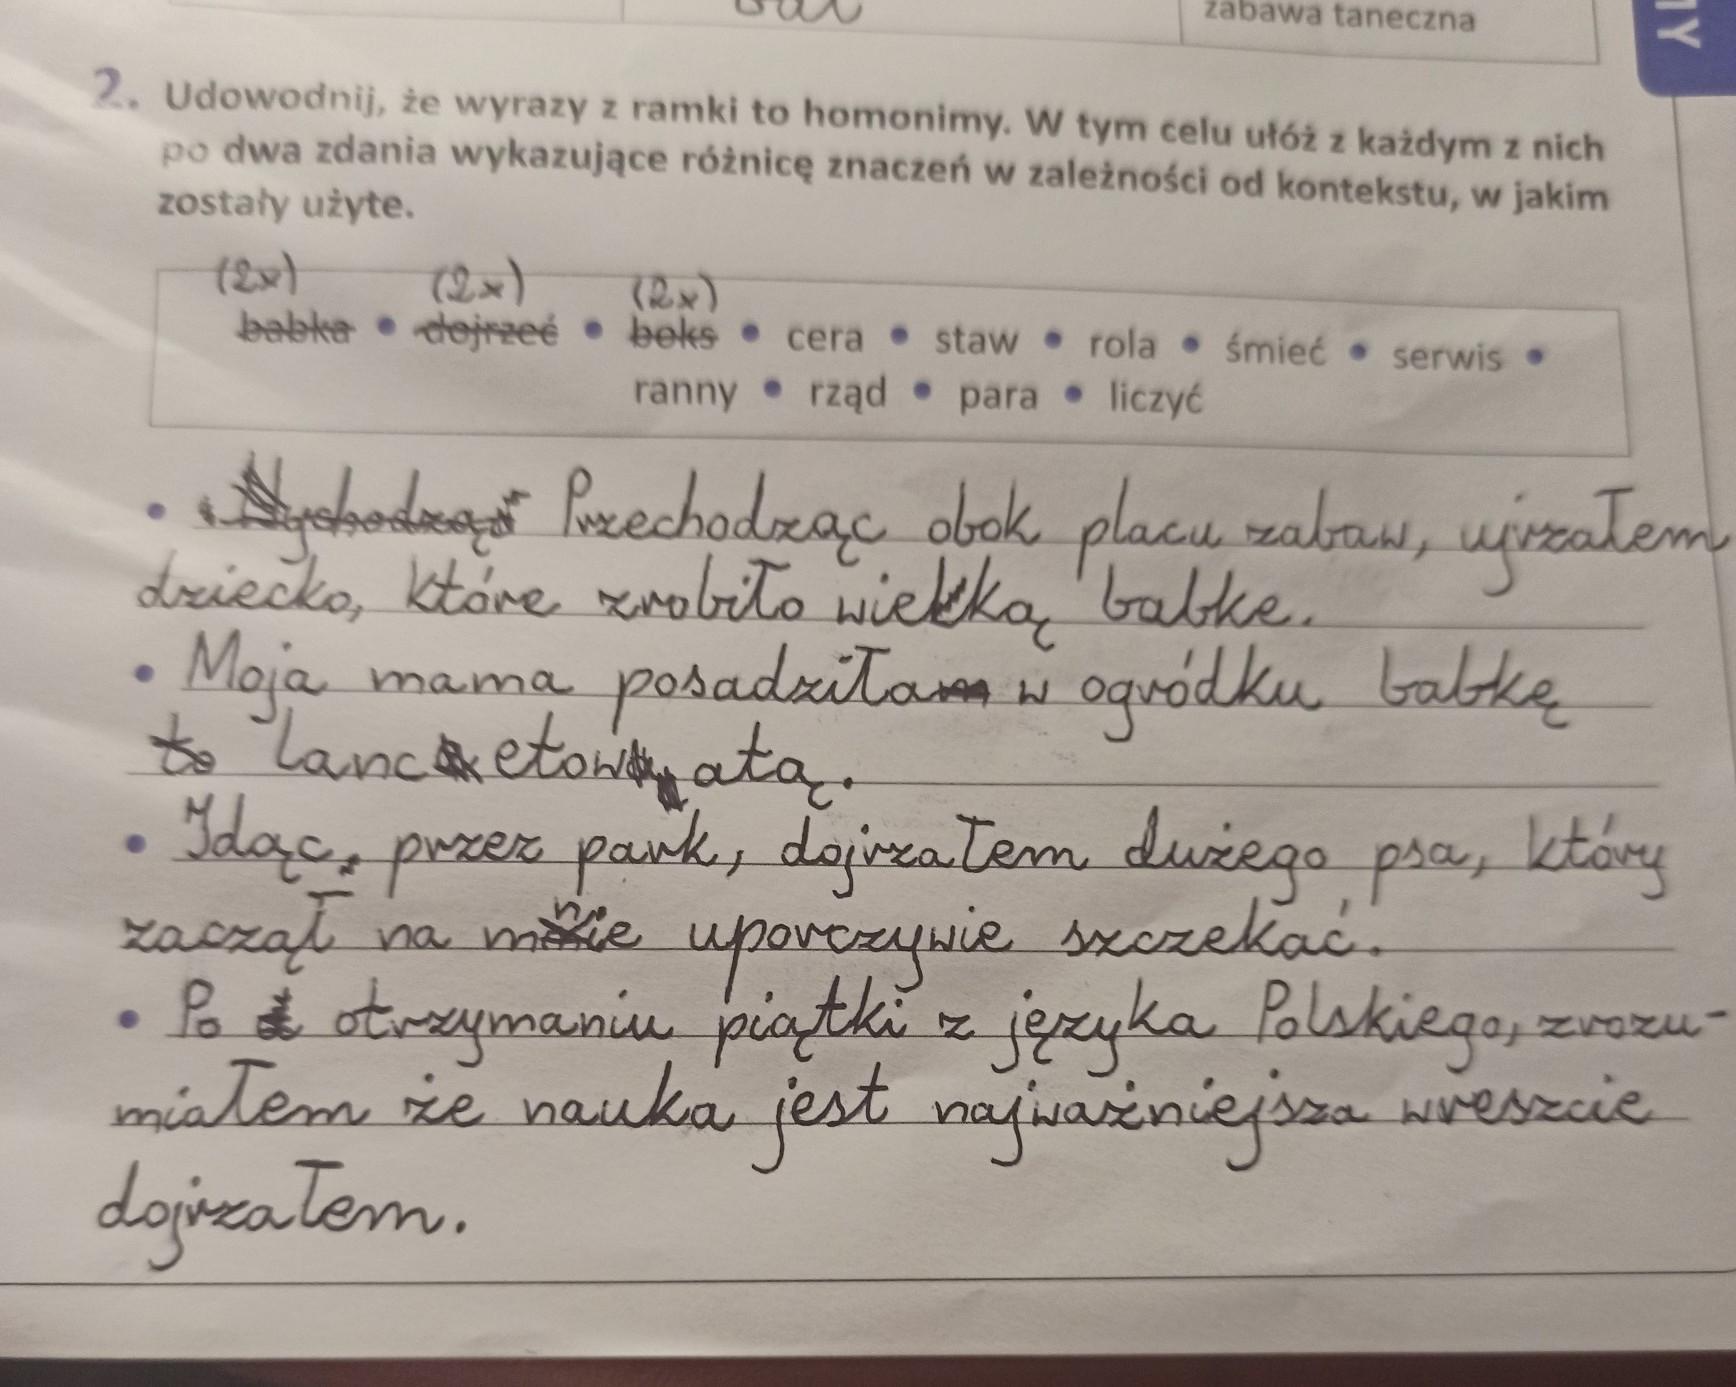 bal
zabawa taneczna
MY
2. Udowodnij, że wyrazy z ramki to homonimy. W tym celu ułóż z każdym z nich
po dwa zdania wykazujące różnicę znaczeń w zależności od kontekstu, w jakim
zostały użyte.
(2x) (2x) (2x)
babka • dojrzeć • boks • cera • staw • rola • śmieć • serwis •
ranny • rząd • para • liczyć
• Wychodząc Przechodząc obok placu zabaw, ujrzałem
dziecko, które zrobiło wielką babke.
• Moja mama posadziłam w ogródku babkę
to lancetowatą.
• Idąc, przez park, dojrzałem dużego psa, który
zaczął na mnie uporczywie szczekać.
• Po otrzymaniu piątki z języka Polskiego, zrozu-
miałem że nauka jest najważniejsza wreszcie
dojrzałem.